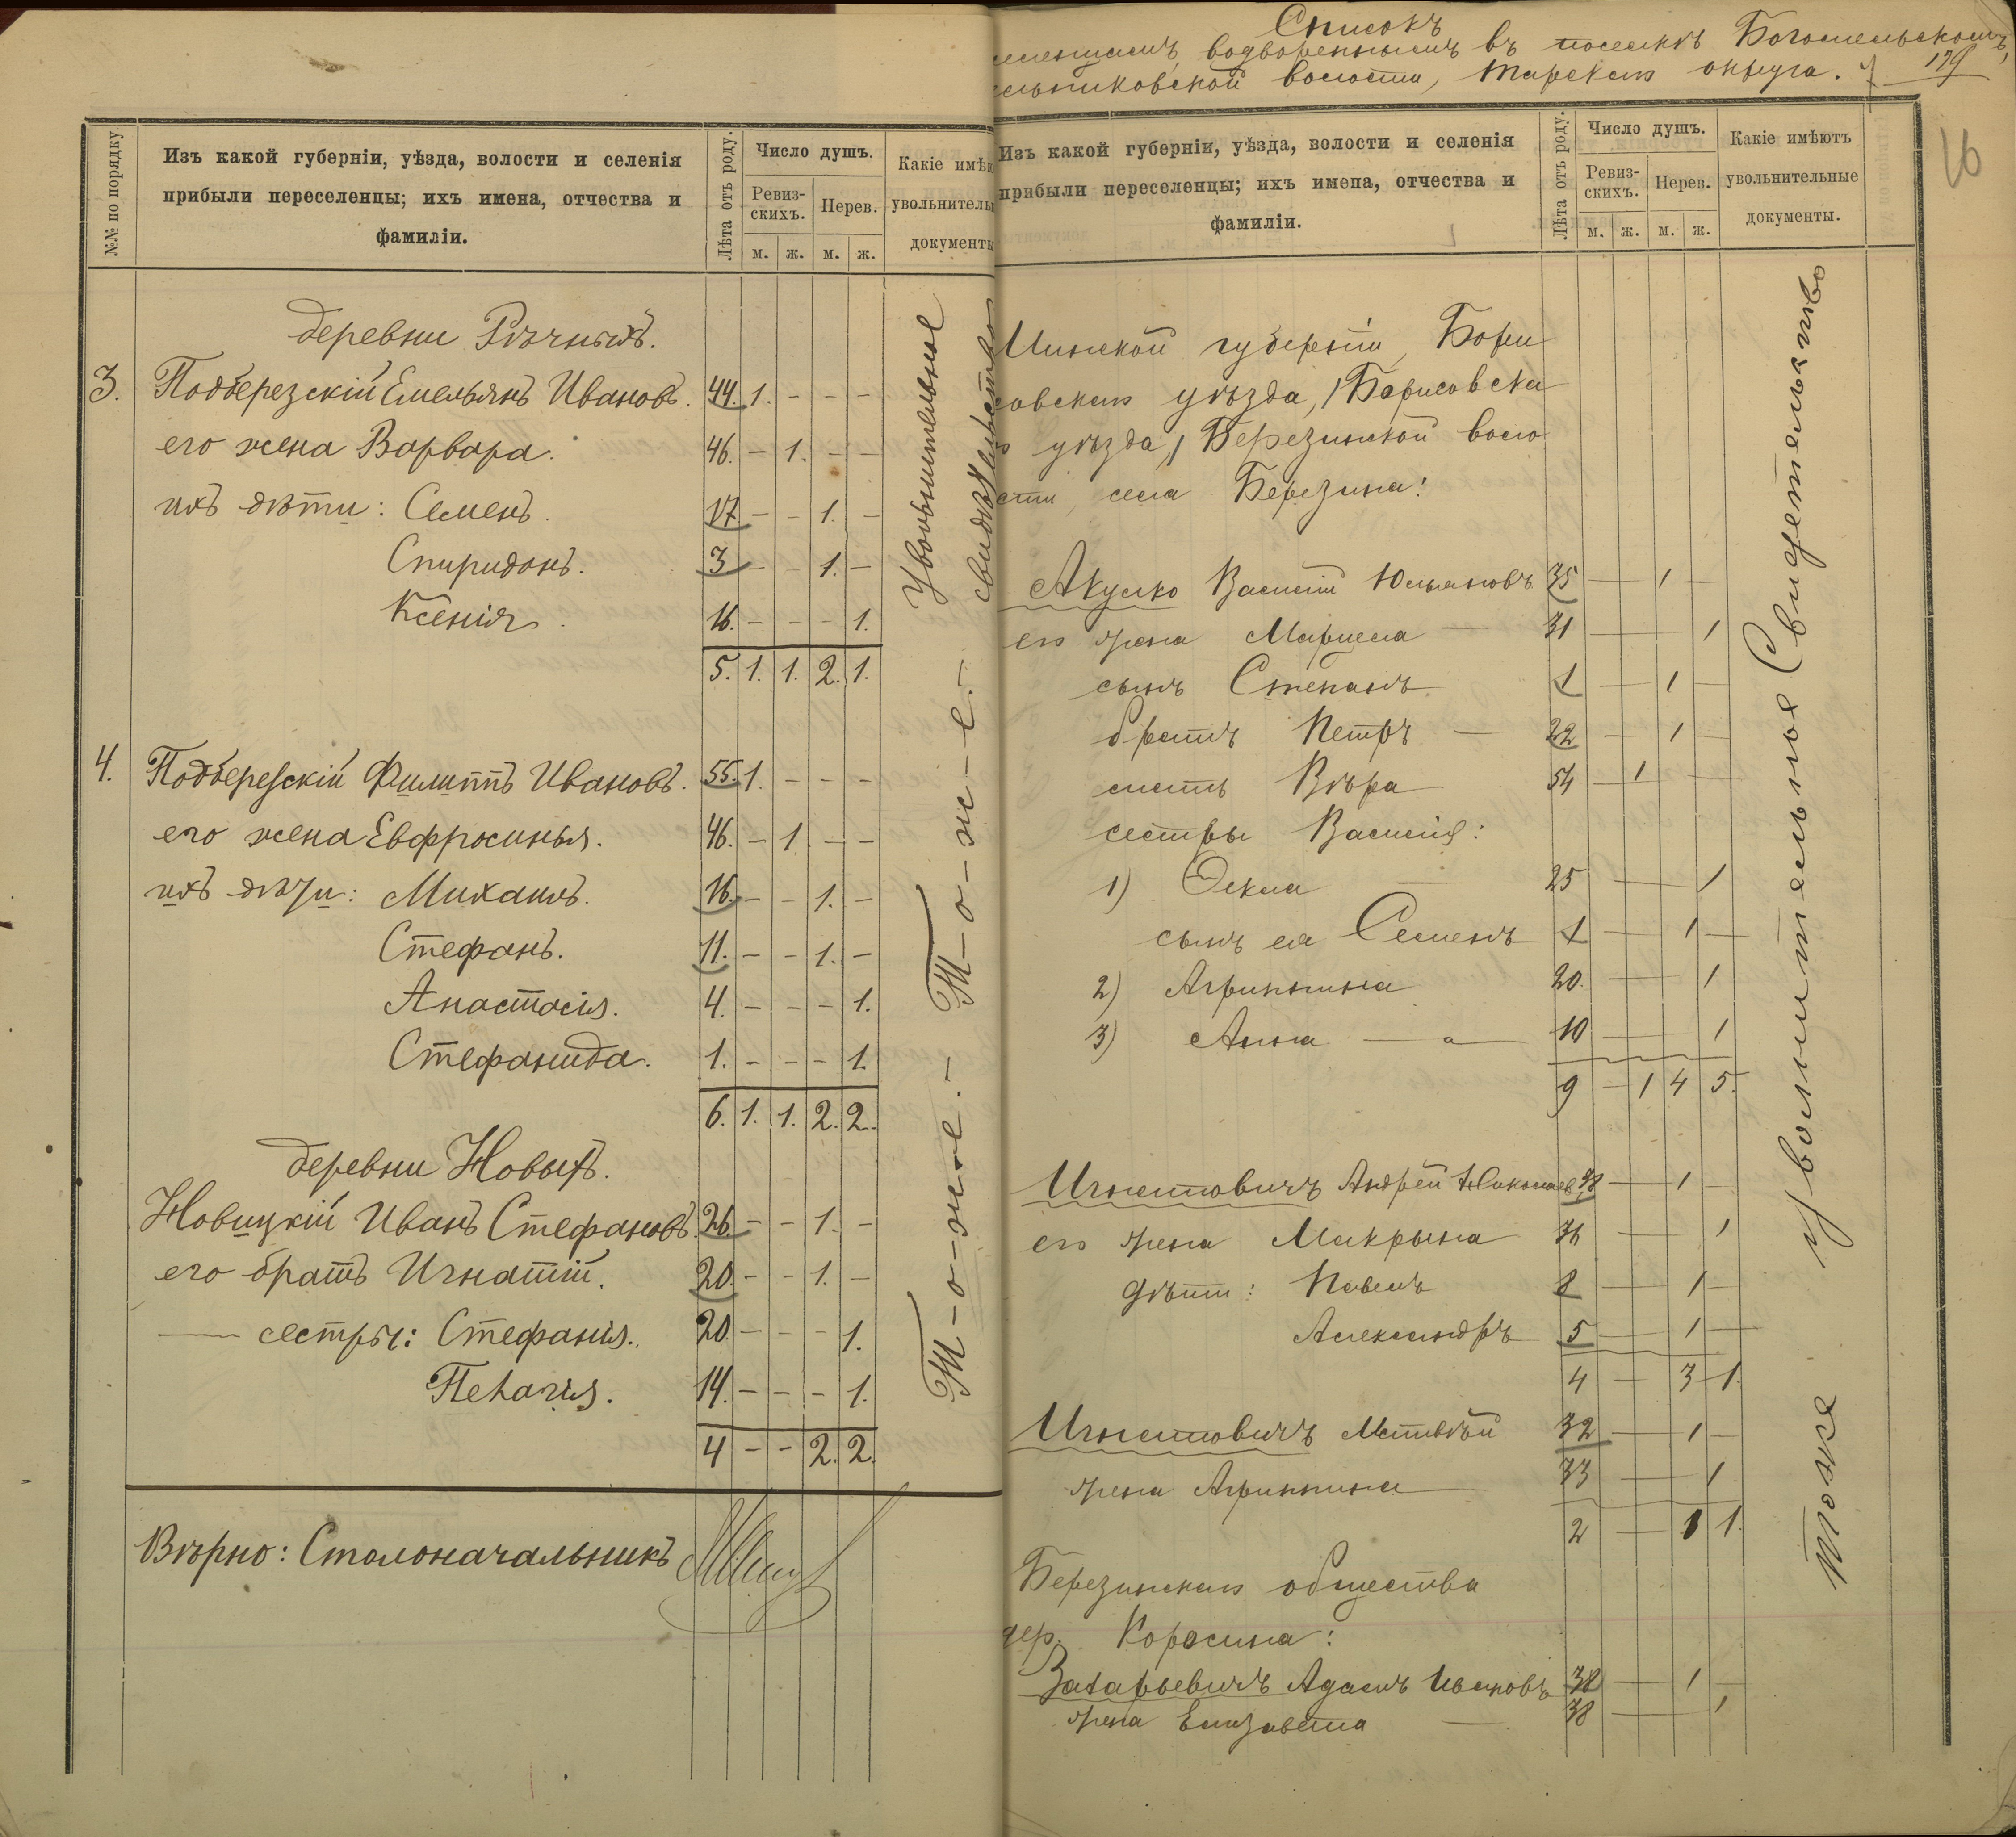 №№ по порядку
Изъ какой губерніи, уѣзда, волости и селенія
прибыли переселенцы; ихъ имена, отчества и
фамиліи.
Лѣта отъ роду.
Число душъ.
Ревиз-
скихъ.
Нерев.
м. ж. м. ж.
Какіе имѣю
увольнитель
документы
деревни Рѣчныхъ.
3. Подберезскій Емельянъ Ивановъ. 44. 1. - - -
его жена Варвара. 46. - 1. - -
ихъ дѣти: Семенъ. 17 - - 1. -
Спиридонъ. 3 - - 1. -
Ксенія. 16. - - - 1.
5. 1. 1. 2. 1.
4. Подберезскій Филиппъ Ивановъ. 55. 1. - - -
его жена Евфросинья. 46. - 1 - -
ихъ дѣти: Михаилъ. 16. - - 1. -
Стефанъ. 11. - - 1. -
Анастасія. 4. - - - 1.
Стефанида. 1. - - - 1.
6. 1. 1. 2. 2.
деревни Новыхъ.
Новицкій Иванъ Стефановъ. 26. - - 1. -
его братъ Игнатій. 20. - - 1. -
— сестры: Стефанія. 20. - - - 1.
Пелагія. 14. - - - 1.
4 - - 2. 2.
Увольнительное
свидѣтельство
Т-о-ж-е.-
Т-о-ж-е.-
Вѣрно: Столоначальникъ
Списокъ
водвореннымъ въ поселкѣ Богомельскомъ,
волости, Тарскаго округа.
179
16
Изъ какой губерніи, уѣзда, волости и селенія
прибыли переселенцы; ихъ имена, отчества и
фамиліи.
Лѣта отъ роду.
Число душъ.
Ревиз-
скихъ.
Нерев.
м. ж. м. ж.
Какіе имѣютъ
увольнительные
документы.
Минской губерніи, Бори
совскаго уѣзда, /Борисовска
го уѣзда,/ Березинской воло
сти, села Березина:
Акулко Василій Юльяновъ 35 — 1 —
его жена Марцела — 31 — 1
сынъ Степанъ 1 — 1 —
братъ Петръ — 22 — 1 —
мать Вѣра 54 — 1 —
сестры Василія:
1) Ѳекла — 25 — 1
сынъ ея Семенъ 1 — 1 —
2) Агрипина 20. — 1
3) Анна — 10 — 1
9 - 1 4 5.
Игнатовичъ Андрей Николаев 38 — 1 —
его жена Макрына 36 — 1
дѣти: Павелъ 8 — 1 —
Александръ 5 — 1 —
4 — 3 1.
Игнатовичъ Матвѣй 32 — 1 —
жена Агрипина 33 — 1
2 — 1 1.
Березинскаго общества
дер. Коросина:
Захарьевичъ Адамъ Ивановъ 38 — 1 —
жена Елизавета — 38 — 1
Увольнительное Свидетельство
тоже